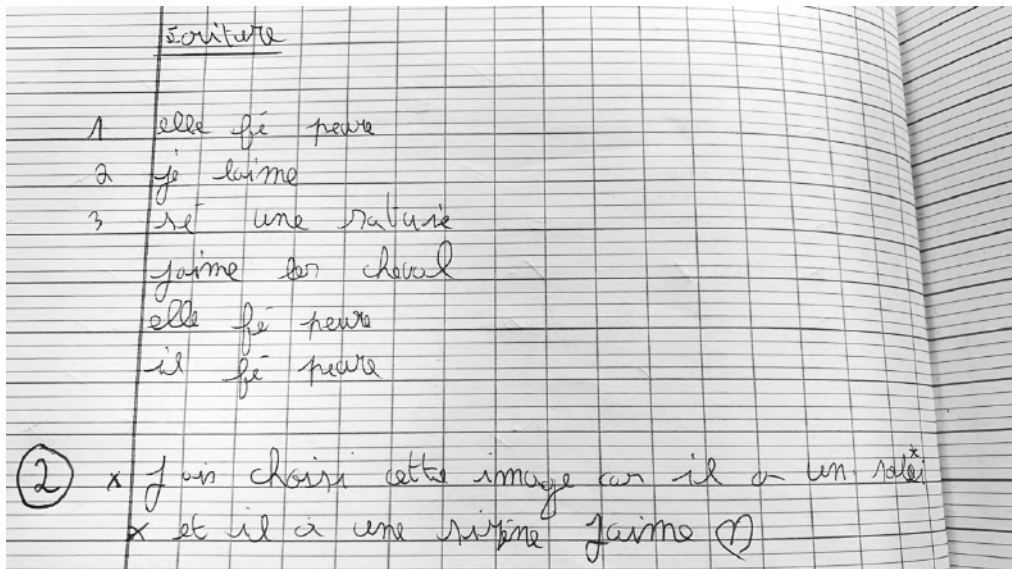 Ecriture
1 elle fé peure
2 je laime
3 sé une
jaime les cheval
elle fé peure
il fé peure
2 x J ais choisi cette image car il a un solei*
x et il a une sirène Jaime ♡